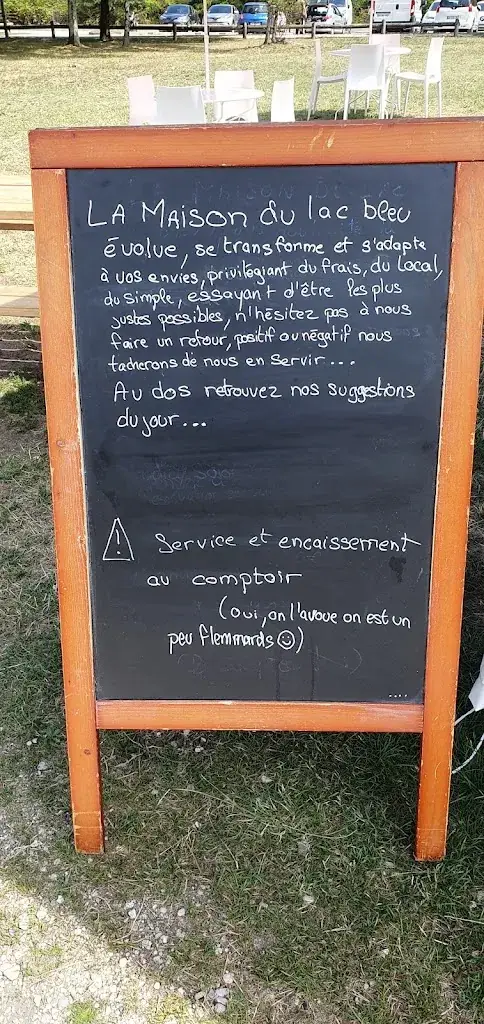 LA MAISON du lac bleu
évolue, se transforme et s'adapte
à vos envies, privilégiant du frais, du local,
du simple, essayant d'être les plus
justes possibles, n'hésitez pas à nous
faire un retour, positif ou négatif nous
tacherons de nous en servir...
Au dos retrouvez nos suggestions
du jour...
! Service et encaissement
au comptoir
(oui, on l'avoue on est un
peu flemmards ☺)
....